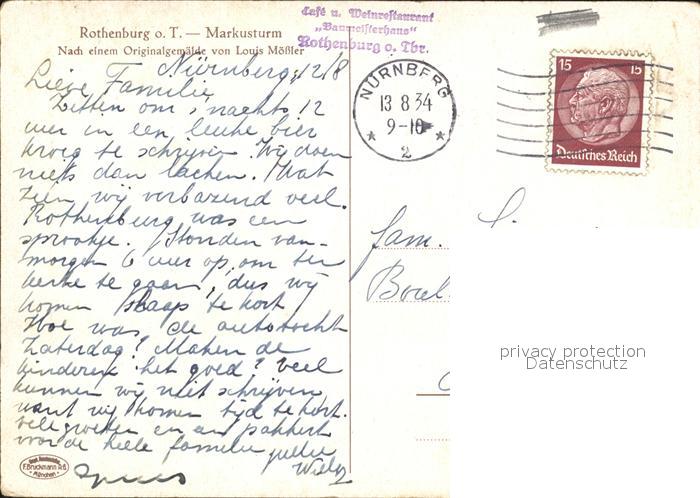 Rothenburg o. T. — Markusturm
Nach einem Originalgemälde von Louis Mößler
Café u. Weinrestaurant
„Baumeisterhaus"
Rothenburg o. Tbr.
NÜRNBERG
13 8 34
9-10
2
15 15
Deutsches Reich
Nürnberg, 12/8
Lieve Familie
Zitten om 's nachts 12
uur in een leuke bier
kroeg te schrijven. Wij doen
niets dan lachen. Wat
zien wij verbazend veel.
Rothenburg was een
sprookje. Stonden van-
morgen 6 uur op, om ter
kerke te gaan, dus wij
komen slaap te kort
Hoe was de autotocht
Zaterdag? Maken de
kinderen het goed? Veel
kunnen wij niet schrijven
want wij komen tijd te kort.
Vele groeten en een pakkert
voor de heele familie jullie
Fam. S.
Boul
F. Bruckmann A.G.
München
privacy protection
Datenschutz